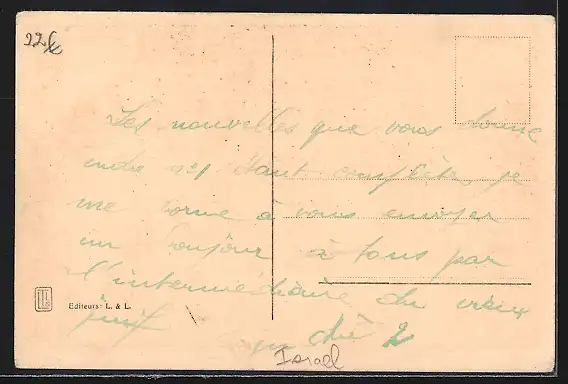 Les nouvelles que vous donne
André n°1 étant complètes, je
me borne à vous envoyer
un bonjour à tous par
l'intermédiaire du vieux
juif
dré 2
Editeurs: L. & L.
Israel